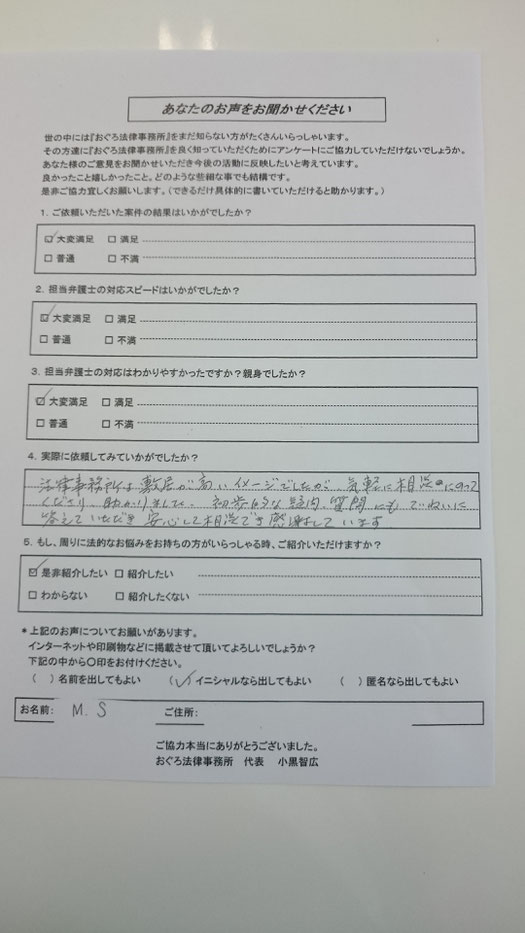 あなたのお声をお聞かせください
世の中には『おぐろ法律事務所』をまだ知らない方がたくさんいらっしゃいます。
その方達に『おぐろ法律事務所』を良く知っていただくためにアンケートにご協力していただけないでしょうか。
あなた様のご意見をお聞かせいただき今後の活動に反映したいと考えています。
良かったこと嬉しかったこと。どのような些細な事でも結構です。
是非ご協力宜しくお願いします。（できるだけ具体的に書いていただけると助かります。）
1．ご依頼いただいた案件の結果はいかがでしたか？
☑大変満足 □満足
□普通 □不満
2．担当弁護士の対応スピードはいかがでしたか？
☑大変満足 □満足
□普通 □不満
3．担当弁護士の対応はわかりやすかったですか？親身でしたか？
☑大変満足 □満足
□普通 □不満
4．実際に依頼してみていかがでしたか？
法律事務所は敷居が高いイメージでしたが、気軽に相談にのって
くださり、助かりました。初歩的な質問にもていねいに
答えていただき安心して相談でき感謝しています
5．もし、周りに法的なお悩みをお持ちの方がいらっしゃる時、ご紹介いただけますか？
☑是非紹介したい □紹介したい
□わからない □紹介したくない
＊上記のお声についてお願いがあります。
インターネットや印刷物などに掲載させて頂いてよろしいでしょうか？
下記の中から〇印をお付けください。
（ ）名前を出してもよい （✓）イニシャルなら出してもよい （ ）匿名なら出してもよい
お名前： M．S ご住所：
ご協力本当にありがとうございました。
おぐろ法律事務所 代表 小黒智広